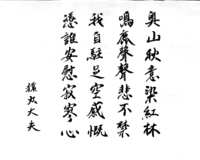 奥山秋意染紅林
鳴鹿聲聲悲不禁
我自駐足空感慨
憑誰安慰寂寥心
猿丸大夫